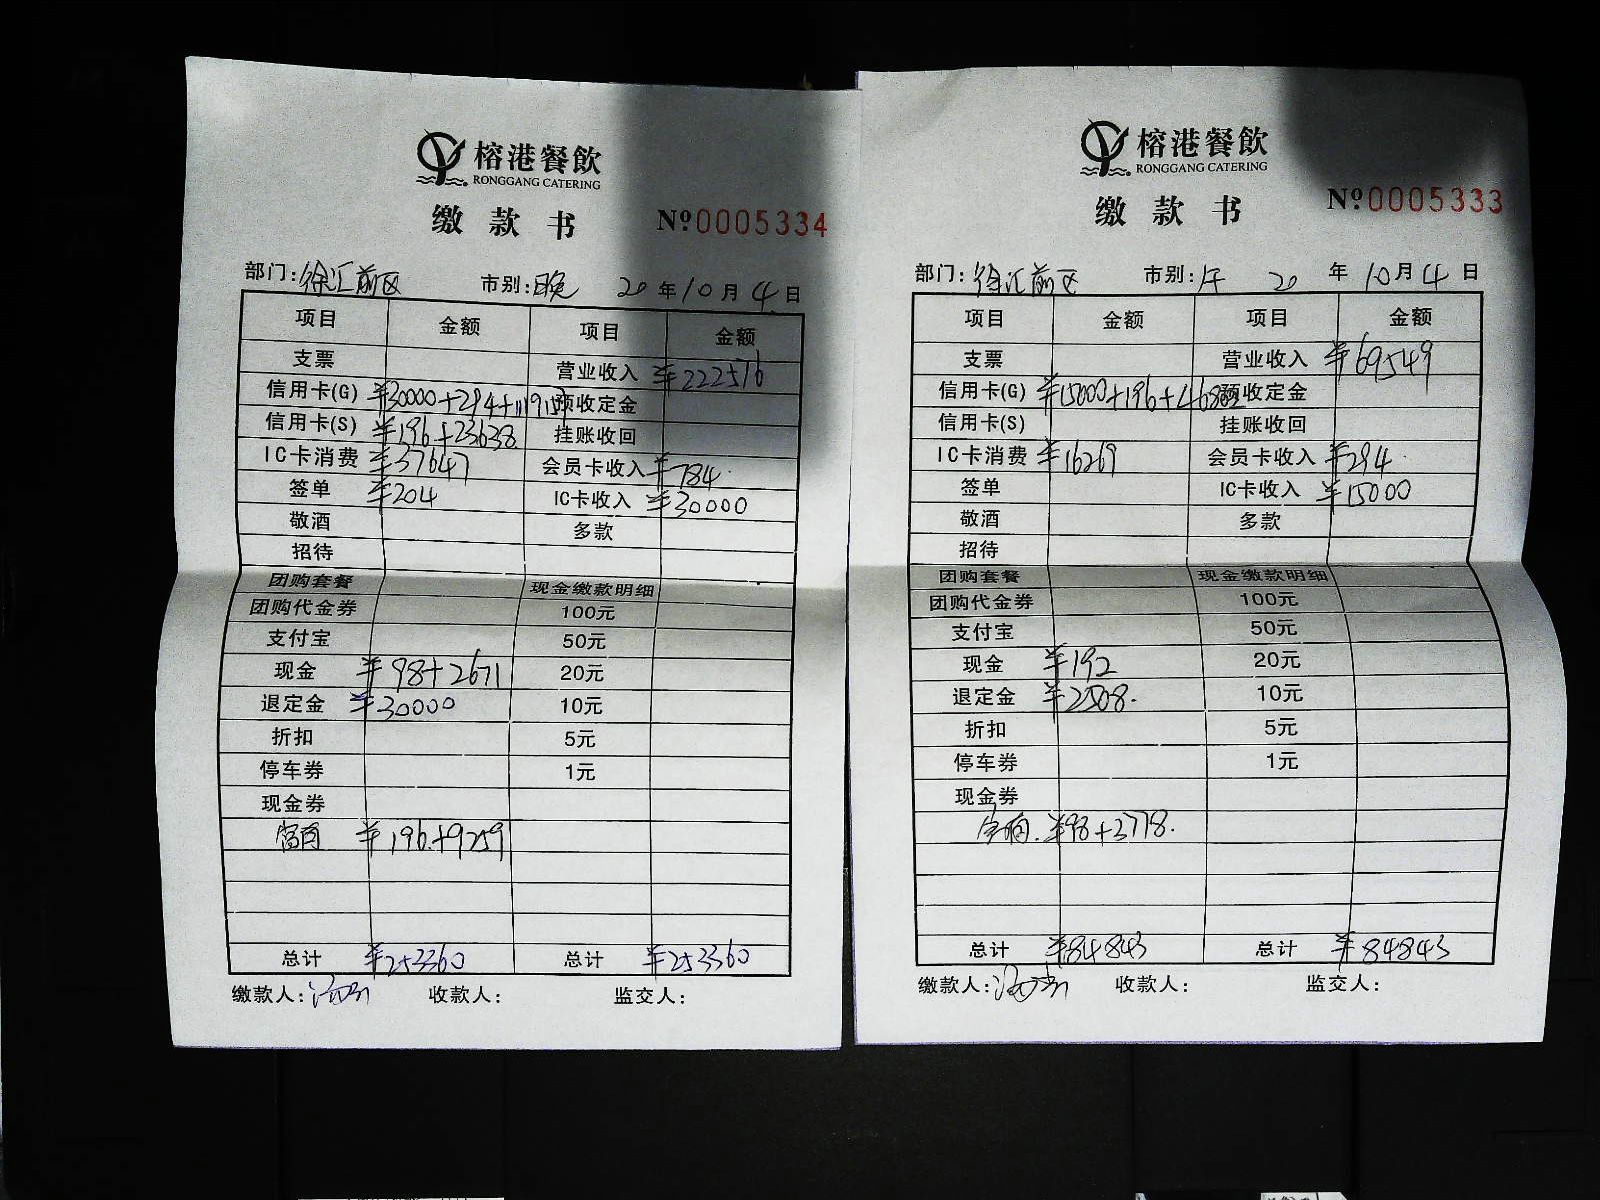 榕港餐飲
RONGGANG CATERING
缴款书 №0005334
部门:徐汇前区 市别:晚 20 年10月4日
项目 金额 项目 金额
支票 营业收入 ¥222576
信用卡(G) ¥30000+294+119157 预收定金
信用卡(S) ¥196+23638 挂账收回
IC卡消费 ¥37647 会员卡收入 ¥784.
签单 ¥204 IC卡收入 ¥30000
敬酒 多款
招待
团购套餐 现金缴款明细
团购代金券 100元
支付宝 50元
现金 ¥98+2671 20元
退定金 ¥30000 10元
折扣 5元
停车券 1元
现金券
¥196+9259
总计 ¥253360 总计 ¥253360
缴款人: 收款人: 监交人:
榕港餐飲
RONGGANG CATERING
缴款书 №0005333
部门:徐汇前区 市别:午 20 年10月4日
项目 金额 项目 金额
支票 营业收入 ¥69549
信用卡(G) ¥15000+196+46802 预收定金
信用卡(S) 挂账收回
IC卡消费 ¥16269 会员卡收入 ¥294.
签单 IC卡收入 ¥15000
敬酒 多款
招待
团购套餐 现金缴款明细
团购代金券 100元
支付宝 50元
现金 ¥192 20元
退定金 ¥2508. 10元
折扣 5元
停车券 1元
现金券
¥98+3778.
总计 ¥84843 总计 ¥84843
缴款人: 收款人: 监交人: